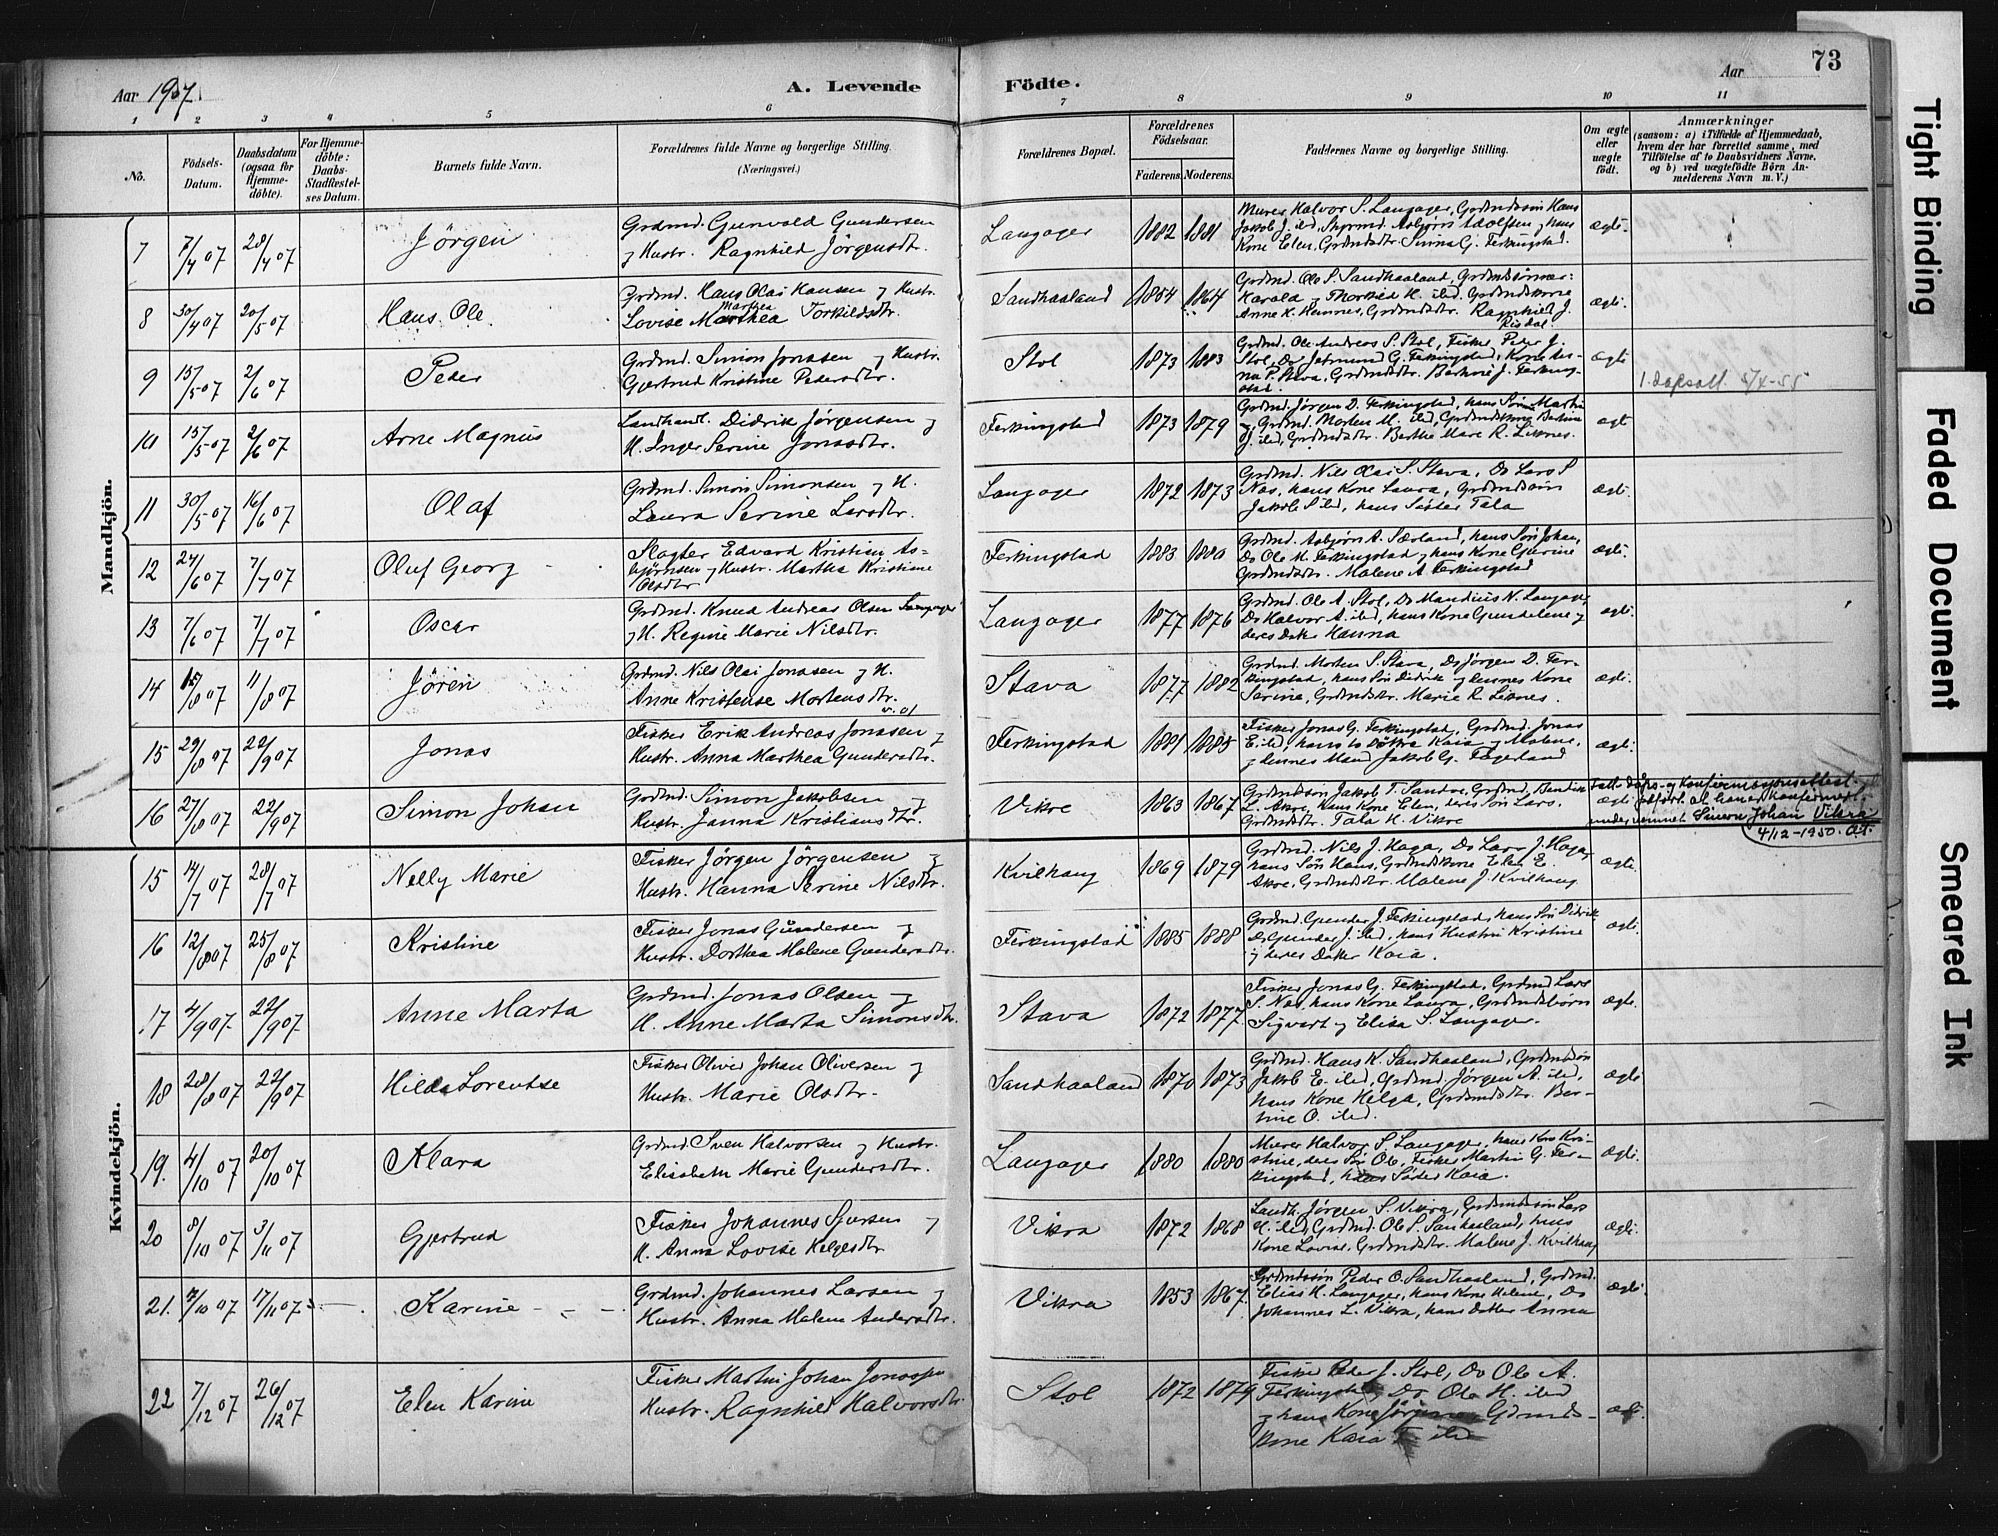 73
Aar 1907
A. Levende Födte.
Aar
1 2 3 4 5 6 7 8 9 10 11
No.
Födsels-Datum.
Daabsdatum (ogsaa för Hjemme-döbte).
For Hjemme-döbte: Daabs-Stadfæstel-ses Datum.
Barnets fulde Navn.
Forældrenes fulde Navne og borgerlige Stilling. (Næringsvei.)
Forældrenes Bopæl.
Forældrenes Födselsaar.
Faderens. Moderens.
Faddernes Navne og borgerlige Stilling.
Om ægte eller uægte födt.
Anmærkninger
(saasom: a) i Tilfælde af Hjemmedaab,
hvem der har forrettet samme, med
Tilföielse af to Daabsvidners Navne,
og b) ved uægtefödte Börn An-
melderens Navn m. V.)
Mandkjön.
7 7/4 07 28/4 07 Jörgen
Grdmd. Gunvald Gundersen
og Hustr. Ragnhild Jörgensdtr.
Langager 1882 1881
Murer Halvor S. Langager, Grdmdssön Hans
Jakob J. ibd, Asbjörn Adolfsen og hans
Kone Elen, Grdmdsdtr. G. Ferkingstad.
ægte.
8 30/4 07 20/5 07 Hans Ole
Grdmd. Hans Olai Hansen og Hustr.
Lovise Marthea Torkildsdtr.
Sandhaaland 1854 1864
Grdmd. Ole S. Sandhaaland, Grdmdssönner:
Harald og Thorkild H. ibd. Grdmdskone
Anne K. Hemnes, Grdmdsdtr. Ragnhild J.
Risdal
ægte.
9 15/5 07 2/6 07 Peder
Grdmd. Simon Jonasen og Hustr.
Gjertrud Kristine Pedersdtr.
Stol 1873 1883
Grdmd. Ole Andreas S. Stol, Fisker Peder J.
Stol, Do Jetmund G. Ferkingstad, Kone An-
na P. Stava, Grdmdsdtr. Berthine J. Ferking-
stad.
ægte
10 15/5 07 2/6 07 Arne Magnus
Landhandl. Didrik Jörgensen og
H. Inger Serine Jonasdtr.
Ferkingstad 1873 1879
Grdmd. Jörgen D. Ferkingstad, hans Sön Martin
og Grdmd. Morten M. ibd, Grdmdskone
J. ibd, Grdmdsdtr. Berthe Marie R. Liknes.
ægte
11 30/5 07 16/6 07 Olaf
Grdmd. Simon Simonsen og H.
Laura Serine Larsdtr.
Langager 1872 1873
Grdmd. Nils Olai S. Stava, Do Lars S
Nas, hans Kone Laura, Grdmdssön
Jakob S ibd, hans Söster Tala
ægte.
12 24/6 07 7/7 07 Oluf Georg
Slagter Edvard Kristian As-
björnsen og Hustr. Martha Kristiane
Olsdtr
Ferkingstad 1883 1880
Grdmd. Asbjörn A. Særland, hans Sön Johan,
Do Ole M. Ferkingstad og hans Kone Gurine
Grdmdsdtr. Malene A Ferkingstad
ægte.
13 7/6 07 7/7 07 Oscar
Grdmd. Knud Andreas Olsen Langager
og H. Regine Marie Nilsdtr.
Langager 1877 1876
Grdmd. Ole A. Stol, Do Mandius N. Langager
Do Halvor A. ibd, hans Kone Gundelene og
deres Datter Hanna
ægte.
14 15/8 07 11/8 07 Jören
Grdmd. Nils Olai Jonasen og H.
Anne Kristense Mortensdtr.
Stava 1877 1882
Grdmd. Morten S. Stava, Do Jörgen D. Fer-
kingstad, hans Sön Didrik og dennes Kone
Serine, Grdmdsdtr. Marie R. Liknes.
ægte.
15 29/8 07 22/9 07 Jonas
Fisker Erik Andreas Jonasen og
Hustr. Anna Marthea Gundersdtr.
Ferkingstad 1881 1885
Fisker Jonas G. Ferkingstad, Grdmd. Jonas
E. ibd, hans to Döttre Kaia og Malene,
og dennes Mand Jakob G. Fagerland
ægte.
16 27/8 07 22/9 07 Simon Johan
Grdmd. Simon Jakobsen og
Hustr. Janna Kristiansdtr.
Vikre 1863 1867
Grdmdssön Jakob T. Sandve, Grdmd,
L. Akre, hans Kone Elen, deres Sön Lars.
Grdmdsdtr. Tala H. Vikre
ægte
dåps- og konfirmasjonsattest
påfört at han er konfirmert
under navnet Simon Johan Vikra
4/12-1950.
Kvindekjön.
15 14/7 07 28/7 07 Nelly Marie
Fisker Jörgen Jörgensen og
Hustr. Hanna Serine Nilsdtr.
Kvilhaug 1869 1879
Grdmd. Nils J. Haga, Do Lars J. Haga,
hans Sön Hans, Grdmdskone Elen E.
Akre, Grdmdsdtr. Malene J. Kvilhaug
ægte.
16 12/8 07 25/8 07 Kristine
Fisker Jonas Gundersen og
Hustr. Dorthea Malene Gundersdtr.
Ferkingstad 1885 1888
Grdmd. Gunder J. Ferkingstad, hans Sön Didrik
Do Gunder J. ibd, hans Hustru Kristine
og deres Datter Kaia.
ægte.
17 4/9 07. 22/9 07 Anne Marta
Grdmd. Jonas Olsen og
H. Anne Marta Simonsdtr.
Stava 1872 1877
Fisker Jonas G. Ferkingstad, Grdmd Lars
S. Nas, hans Kone Laura, Grdmdsbörn
Sigvart og Elisa S. Langager.
ægte.
18 28/8 07 22/9 07 Hilda Lorentse
Fisker Oliver Johan Oliversen og
Hustr. Marie Olsdtr.
Sandhaaland 1870 1873
Grdmd. Hans K. Sandhaaland, Grdmdssön
Jakob E. ibd, Grdmd. Jörgen A. ibd,
hans Kone Helga, Grdmdsdtr. Ber-
tine O. ibd.
ægte
19. 4/10 07 20/10 07 Klara
Grdmd. Sven Halvorsen og Hustr.
Elisabeth Marie Gundersdtr.
Langager 1880 1880
Murer Halvor S Langager, hans Kone Kri-
stine, deres Sön Ole, Fisker Martin G. Fer-
kingstad, hans Söster Kaia.
ægte.
20 8/10 07 3/11 07 Gjertrud
Fisker Johannes Sjursen og
H. Anna Lovise Helgesdtr
Vikra 1872 1868
Landh. Jörgen S. Vikra, Grdmdssön Lars
H. ibd, Grdmd. Ole S. Sandhaaland, hans
Kone Lovise, Grdmdsdtr. Malene J. Kvilhaug
ægte.
21. 7/10 07 17/11 07 Karine
Grdmd. Johannes Larsen og
Hustr. Anna Malene Andersdtr.
Vikra 1853 1867
Grdmdssön Peder O. Sandhaaland, Grdmd.
Elias H. Langager, hans Kone Helene, Do
Johannes L. Vikra, hans Datter Anna
ægte.
22 7/12 07 26/12 07 Elen Karine
Fisker Martin Johan Jonassen
Hustr. Ragnhild Halvorsdtr.
Stol 1872 1879
Fisker Peder J. Stol, Do Ole A.
Ferkingstad, Do Ole H. ibd
og hans Kone Grdmds-
kone Kaia T. ibd
ægte.
Tight Binding
Faded Document
Smeared Ink